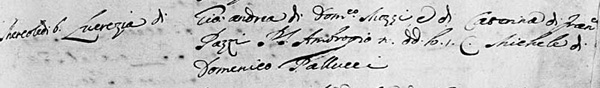 Mercoledi 6. Lucrezia di Gio: andrea di Dom.co Mozzi e di Caterina di Fran.co
Pazzi P. S. Ambrogio n. dd. h. 1. C. Michele di
Domenico Pallucci